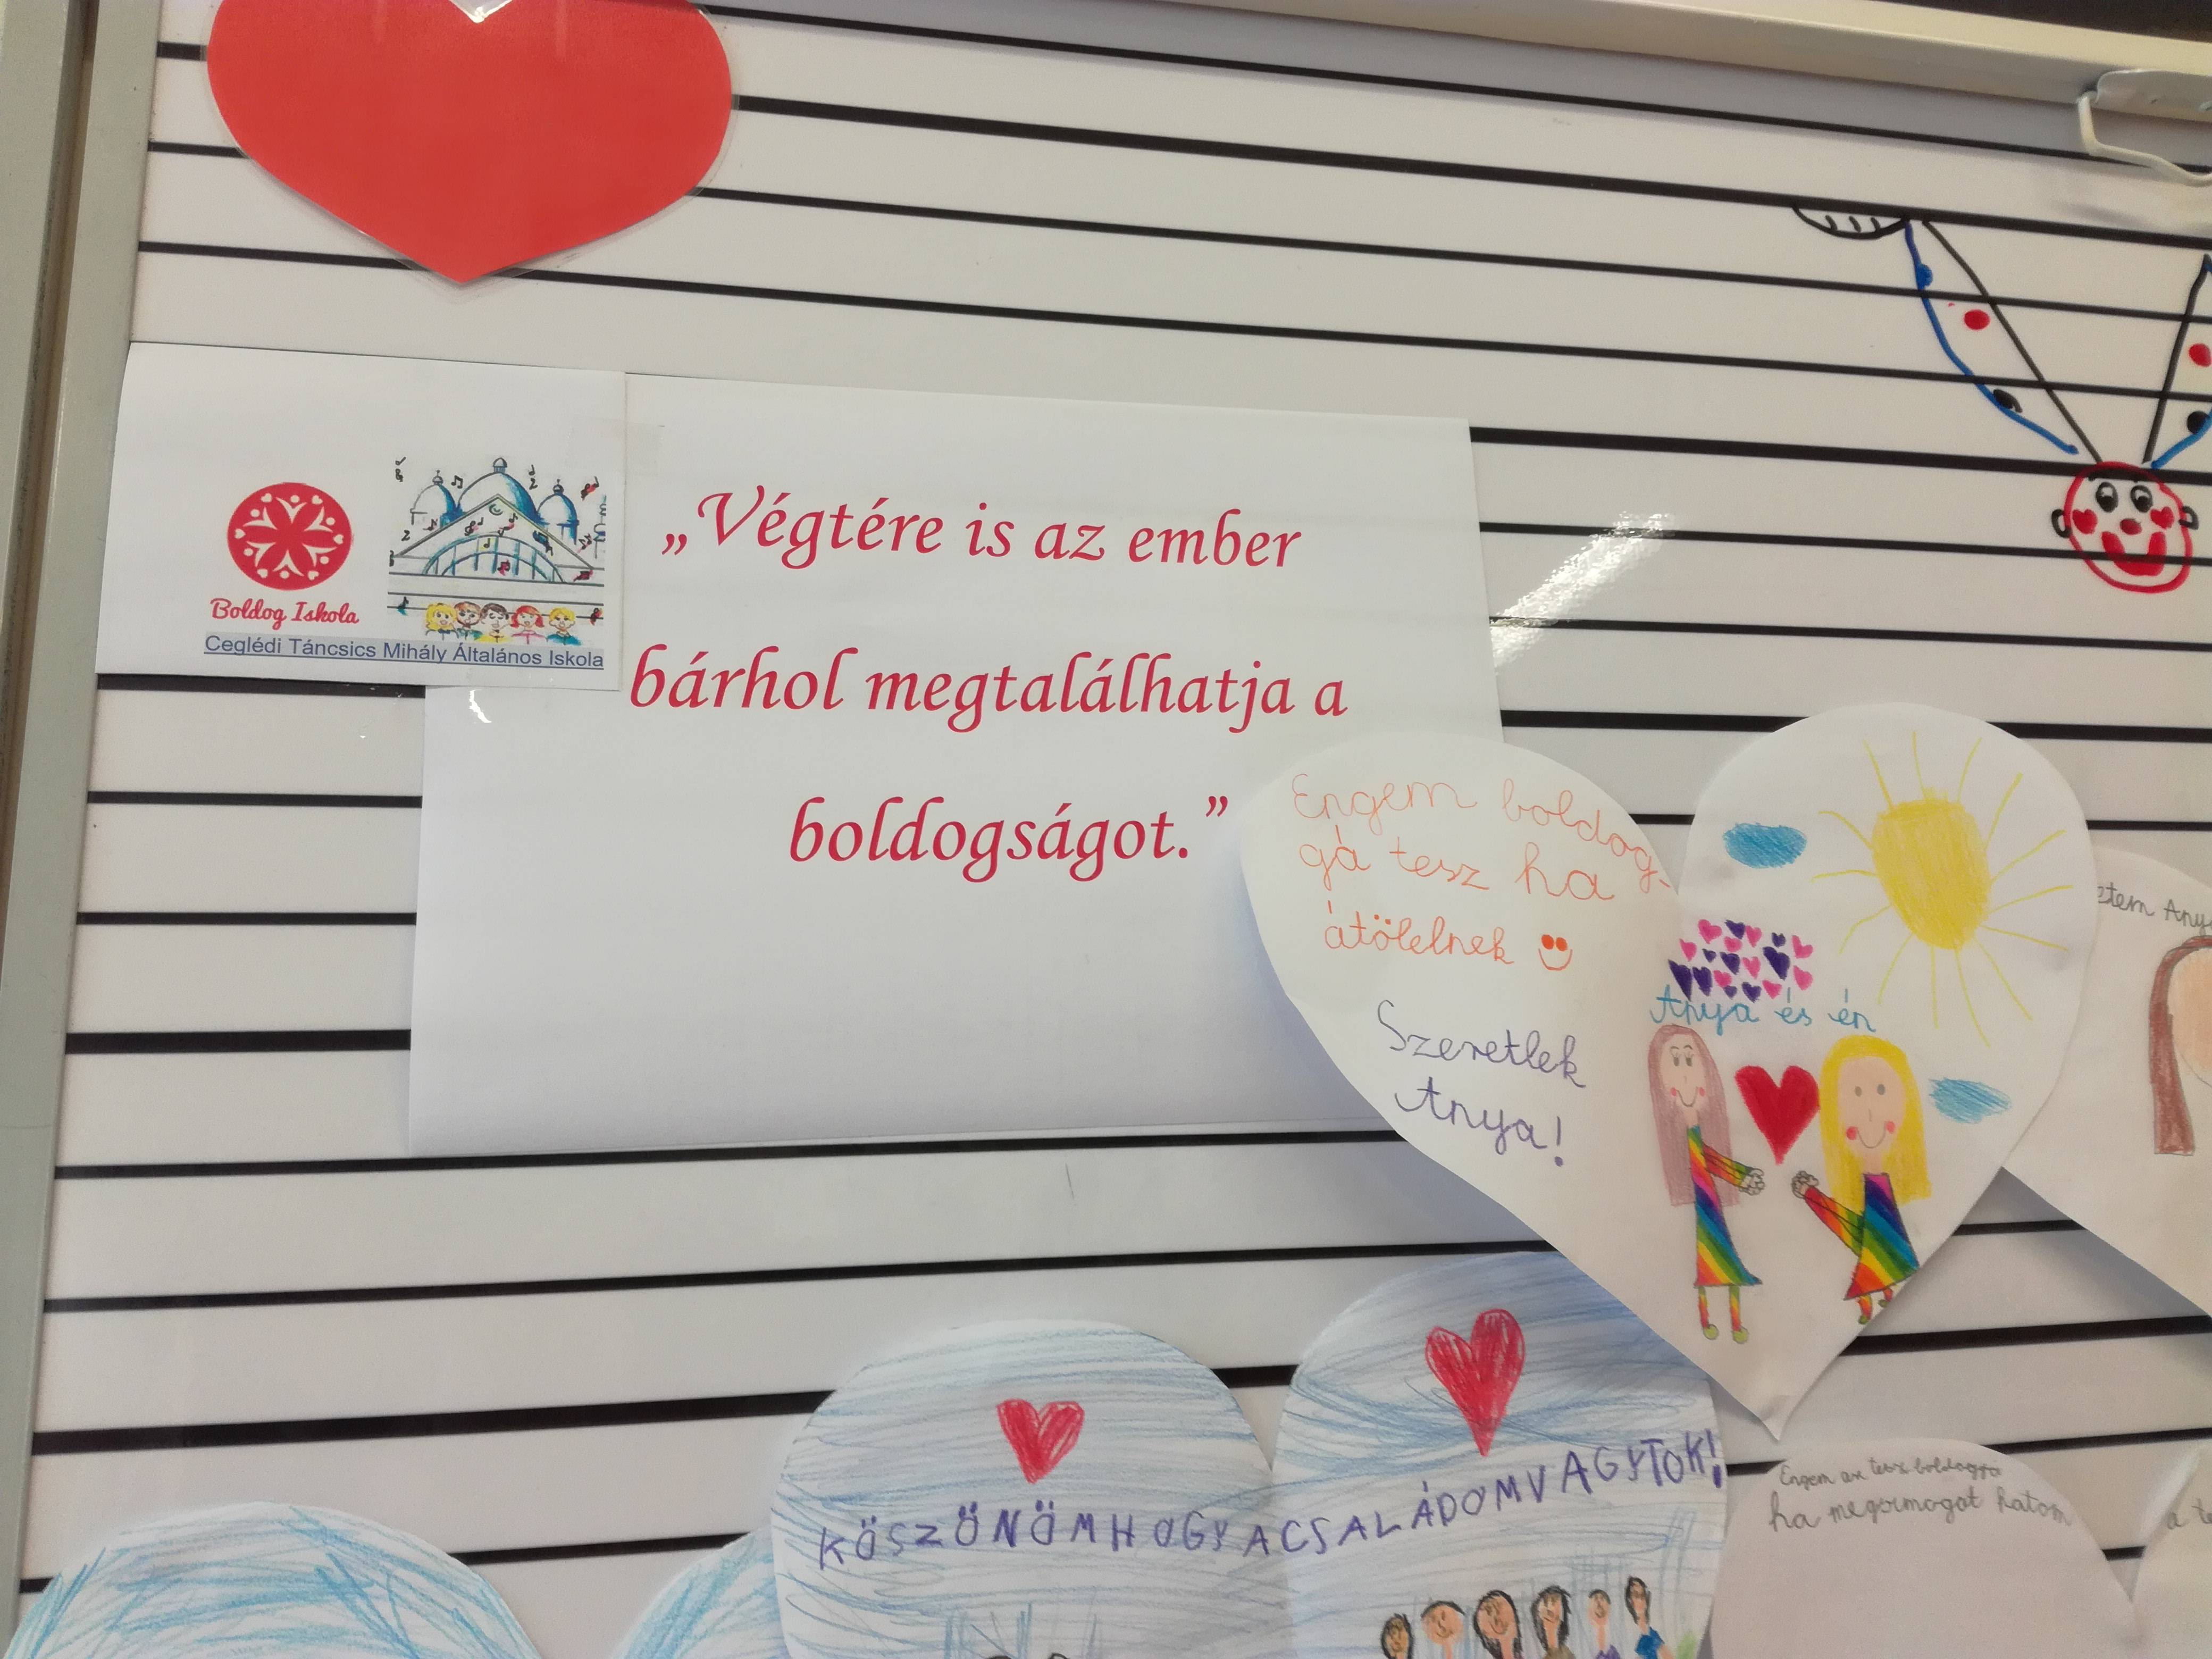 Boldog Iskola
Ceglédi Táncsics Mihály Általános Iskola
„Végtére is az ember
bárhol megtalálhatja a
boldogságot.”
Engem boldog-
gá tesz ha
átölelnek
Szeretlek
Anya!
Anya és én
etem Any
KÖSZÖNÖM HOGY A CSALÁDOM VAGYTOK!
Engem az tesz boldoggá
ha
a te